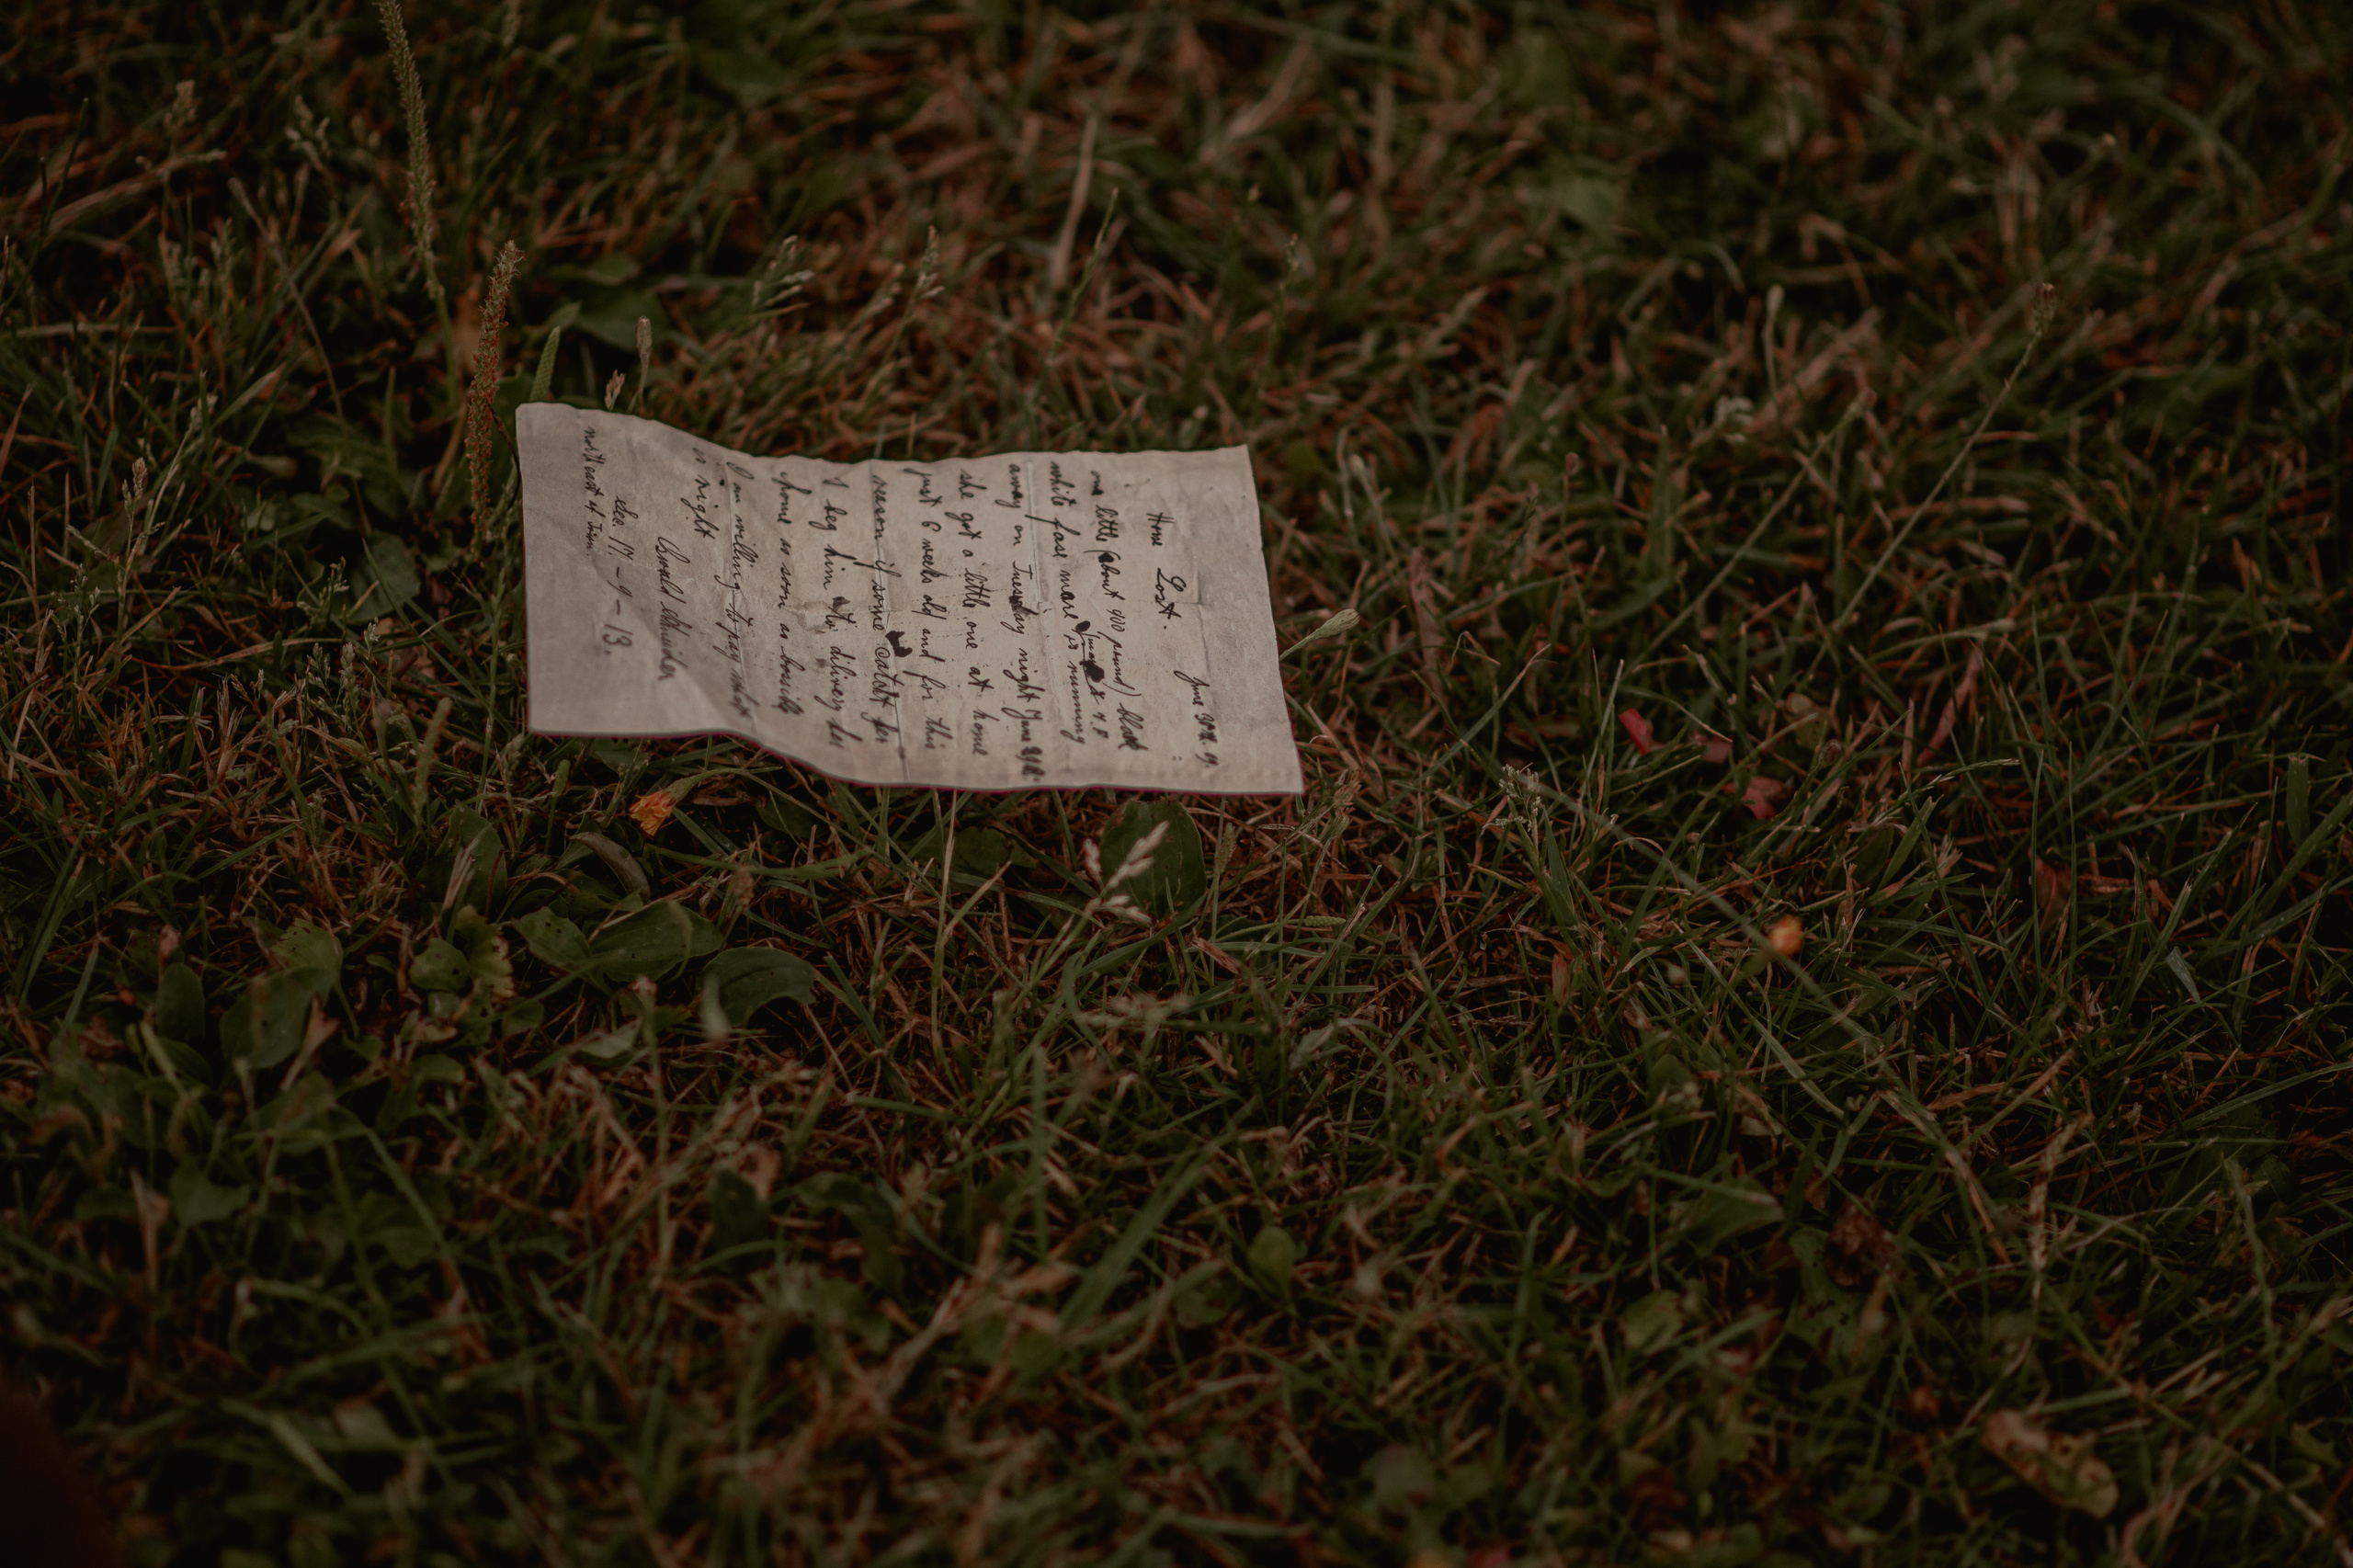 June 30th. 19.
Horse Lost.
one little (about 900 pound) black
white fase mare is running
away on Tuesday night June 28th
she got a little one at home
just 6 weeks old and for this
reason if some catch her
I beg him to dilivery her
home as soon as
I am willing to pay what
is right
Sec. 17 - 9 - 13.
northeast of